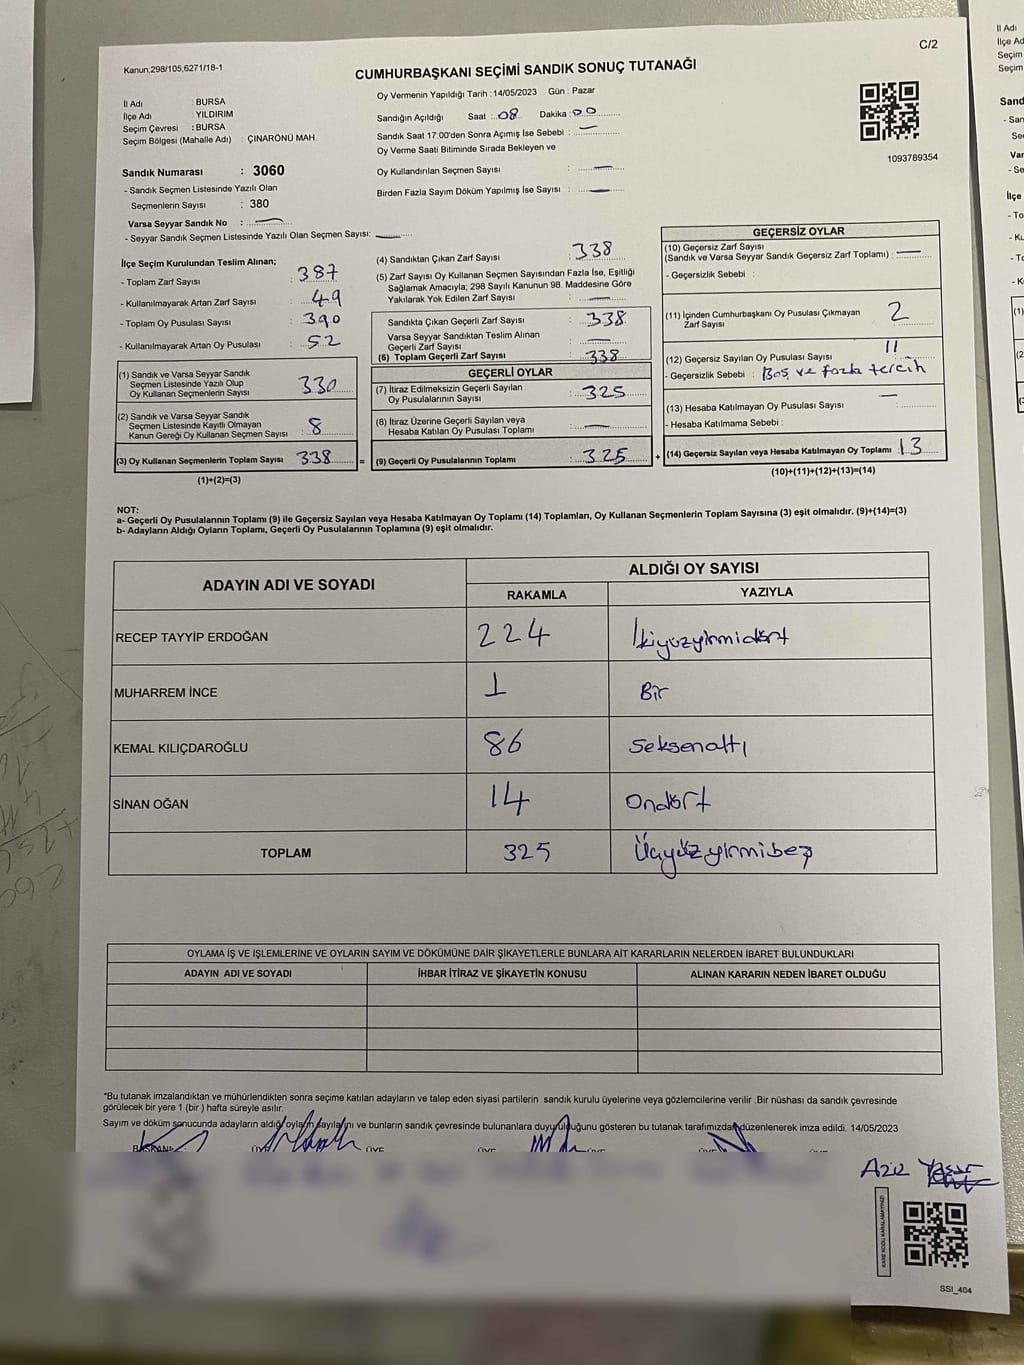 C/2
Kanun:298/105,6271/18-1
CUMHURBAŞKANI SEÇİMİ SANDIK SONUÇ TUTANAĞI
İl Adı : BURSA
İlçe Adı : YILDIRIM
Seçim Çevresi : BURSA
Seçim Bölgesi (Mahalle Adı) : ÇINARÖNÜ MAH.
Oy Vermenin Yapıldığı Tarih : 14/05/2023 Gün : Pazar
Sandığın Açıldığı Saat : 08 Dakika : 00
Sandık Saat 17:00'den Sonra Açımış İse Sebebi : —
Oy Verme Saati Bitiminde Sırada Bekleyen ve
Oy Kullandırılan Seçmen Sayısı : —
Birden Fazla Sayım Döküm Yapılmış İse Sayısı : —
1093789354
Sandık Numarası : 3060
- Sandık Seçmen Listesinde Yazılı Olan
Seçmenlerin Sayısı : 380
Varsa Seyyar Sandık No : —
- Seyyar Sandık Seçmen Listesinde Yazılı Olan Seçmen Sayısı: —
İlçe Seçim Kurulundan Teslim Alınan;
- Toplam Zarf Sayısı : 387
- Kullanılmayarak Artan Zarf Sayısı : 49
- Toplam Oy Pusulası Sayısı : 390
- Kullanılmayarak Artan Oy Pusulası : 52
(1) Sandık ve Varsa Seyyar Sandık
Seçmen Listesinde Yazılı Olup
Oy Kullanan Seçmenlerin Sayısı 330
(2) Sandık ve Varsa Seyyar Sandık
Seçmen Listesinde Kayıtlı Olmayan
Kanun Gereği Oy Kullanan Seçmen Sayısı 8
(3) Oy Kullanan Seçmenlerin Toplam Sayısı 338 =
(1)+(2)=(3)
(4) Sandıktan Çıkan Zarf Sayısı 338
(5) Zarf Sayısı Oy Kullanan Seçmen Sayısından Fazla İse, Eşitliği
Sağlamak Amacıyla; 298 Sayılı Kanunun 98. Maddesine Göre
Yakılarak Yok Edilen Zarf Sayısı : —
Sandıkta Çıkan Geçerli Zarf Sayısı : 338
Varsa Seyyar Sandıktan Teslim Alınan
Geçerli Zarf Sayısı : —
(6) Toplam Geçerli Zarf Sayısı : 338
GEÇERLİ OYLAR
(7) İtiraz Edilmeksizin Geçerli Sayılan
Oy Pusulalarının Sayısı : 325
(8) İtiraz Üzerine Geçerli Sayılan veya
Hesaba Katılan Oy Pusulası Toplamı : —
(9) Geçerli Oy Pusulalarının Toplamı : 325 +
GEÇERSİZ OYLAR
(10) Geçersiz Zarf Sayısı
(Sandık ve Varsa Seyyar Sandık Geçersiz Zarf Toplamı) : —
- Geçersizlik Sebebi :
(11) İçinden Cumhurbaşkanı Oy Pusulası Çıkmayan
Zarf Sayısı : 2
(12) Geçersiz Sayılan Oy Pusulası Sayısı : 11
- Geçersizlik Sebebi : Boş ve fazla tercih
(13) Hesaba Katılmayan Oy Pusulası Sayısı : —
- Hesaba Katılmama Sebebi :
(14) Geçersiz Sayılan veya Hesaba Katılmayan Oy Toplamı : 13
(10)+(11)+(12)+(13)=(14)
NOT:
a- Geçerli Oy Pusulalarının Toplamı (9) ile Geçersiz Sayılan veya Hesaba Katılmayan Oy Toplamı (14) Toplamları, Oy Kullanan Seçmenlerin Toplam Sayısına (3) eşit olmalıdır. (9)+(14)=(3)
b- Adayların Aldığı Oyların Toplamı, Geçerli Oy Pusulalarının Toplamına (9) eşit olmalıdır.
ADAYIN ADI VE SOYADI ALDIĞI OY SAYISI
RAKAMLA YAZIYLA
RECEP TAYYİP ERDOĞAN 224 İkiyüzyirmidört
MUHARREM İNCE 1 Bir
KEMAL KILIÇDAROĞLU 86 Seksenaltı
SİNAN OĞAN 14 Ondört
TOPLAM 325 Üçyüzyirmibeş
OYLAMA İŞ VE İŞLEMLERİNE VE OYLARIN SAYIM VE DÖKÜMÜNE DAİR ŞİKAYETLERLE BUNLARA AİT KARARLARIN NELERDEN İBARET BULUNDUKLARI
ADAYIN ADI VE SOYADI İHBAR İTİRAZ VE ŞİKAYETİN KONUSU ALINAN KARARIN NEDEN İBARET OLDUĞU
*Bu tutanak imzalandıktan ve mühürlendikten sonra seçime katılan adayların ve talep eden siyasi partilerin sandık kurulu üyelerine veya gözlemcilerine verilir .Bir nüshası da sandık çevresinde
görülecek bir yere 1 (bir ) hafta süreyle asılır.
Sayım ve döküm sonucunda adayların aldığı oyların sayılarını ve bunların sandık çevresinde bulunanlara duyurulduğunu gösteren bu tutanak tarafımızdan düzenlenerek imza edildi. 14/05/2023
BAŞKAN ÜYE ÜYE ÜYE ÜYE ÜYE ÜYE
Aziz Yaşar
KARE KODU KARALAMAYINIZ!
SSI_404